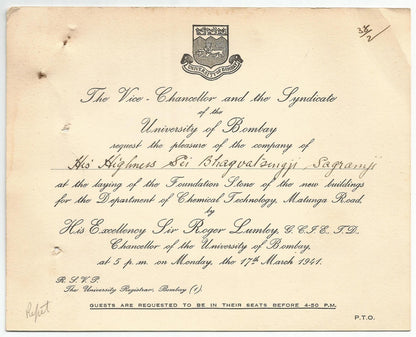 34/2
UNIVERSITY OF BOMBAY
The Vice-Chancellor and the Syndicate
of the
University of Bombay
request the pleasure of the company of
His Highness Sri Bhagvatsingji Sagramji
at the laying of the Foundation Stone of the new buildings
for the Department of Chemical Technology, Matunga Road,
by
His Excellency Sir Roger Lumley, G.C.I.E., T.D.
Chancellor of the University of Bombay,
at 5 p.m. on Monday, the 17th March 1941.
R. S. V. P.
The University Registrar, Bombay (1).
GUESTS ARE REQUESTED TO BE IN THEIR SEATS BEFORE 4-50 P.M.
P.T.O.